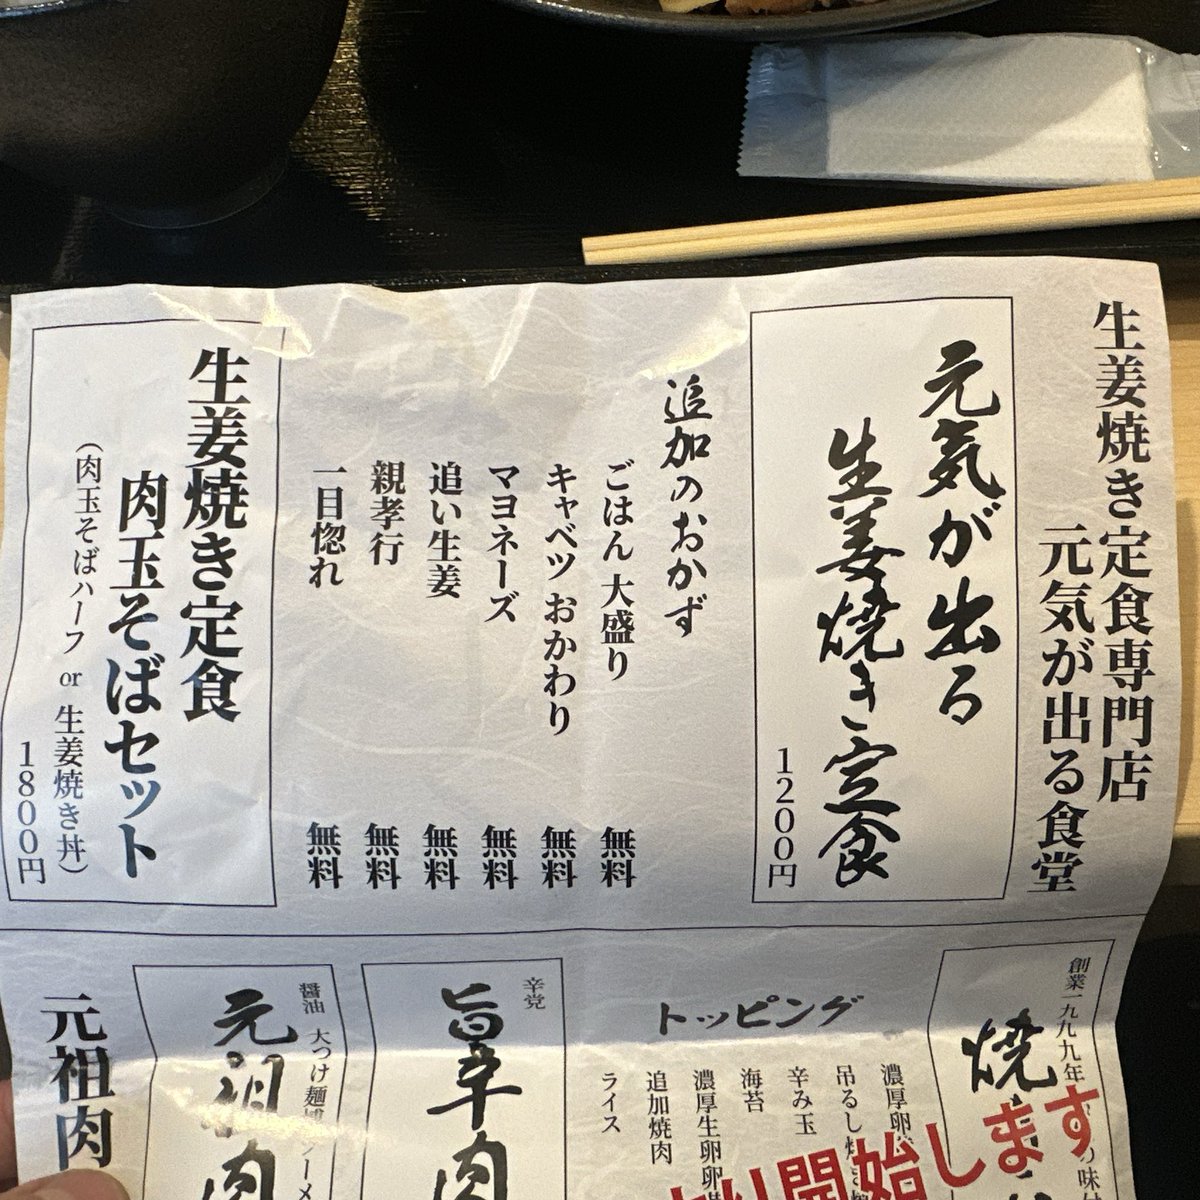 生姜焼き定食専門店
元気が出る食堂
元気が出る
生姜焼き定食
1200円
追加のおかず
ごはん 大盛り 無料
キャベツ おかわり 無料
マヨネーズ 無料
追い生姜 無料
親孝行 無料
一目惚れ 無料
生姜焼き定食
肉玉そばセット
(肉玉そばハーフ or 生姜焼き丼)
1800円
創業一九九九年
焼
トッピング
濃厚卵
吊るし焼
辛み玉
海苔
濃厚生卵
追加焼肉
ライス
開始します
辛党
旨辛肉
醤油 大つけ麺
元祖肉
元祖肉